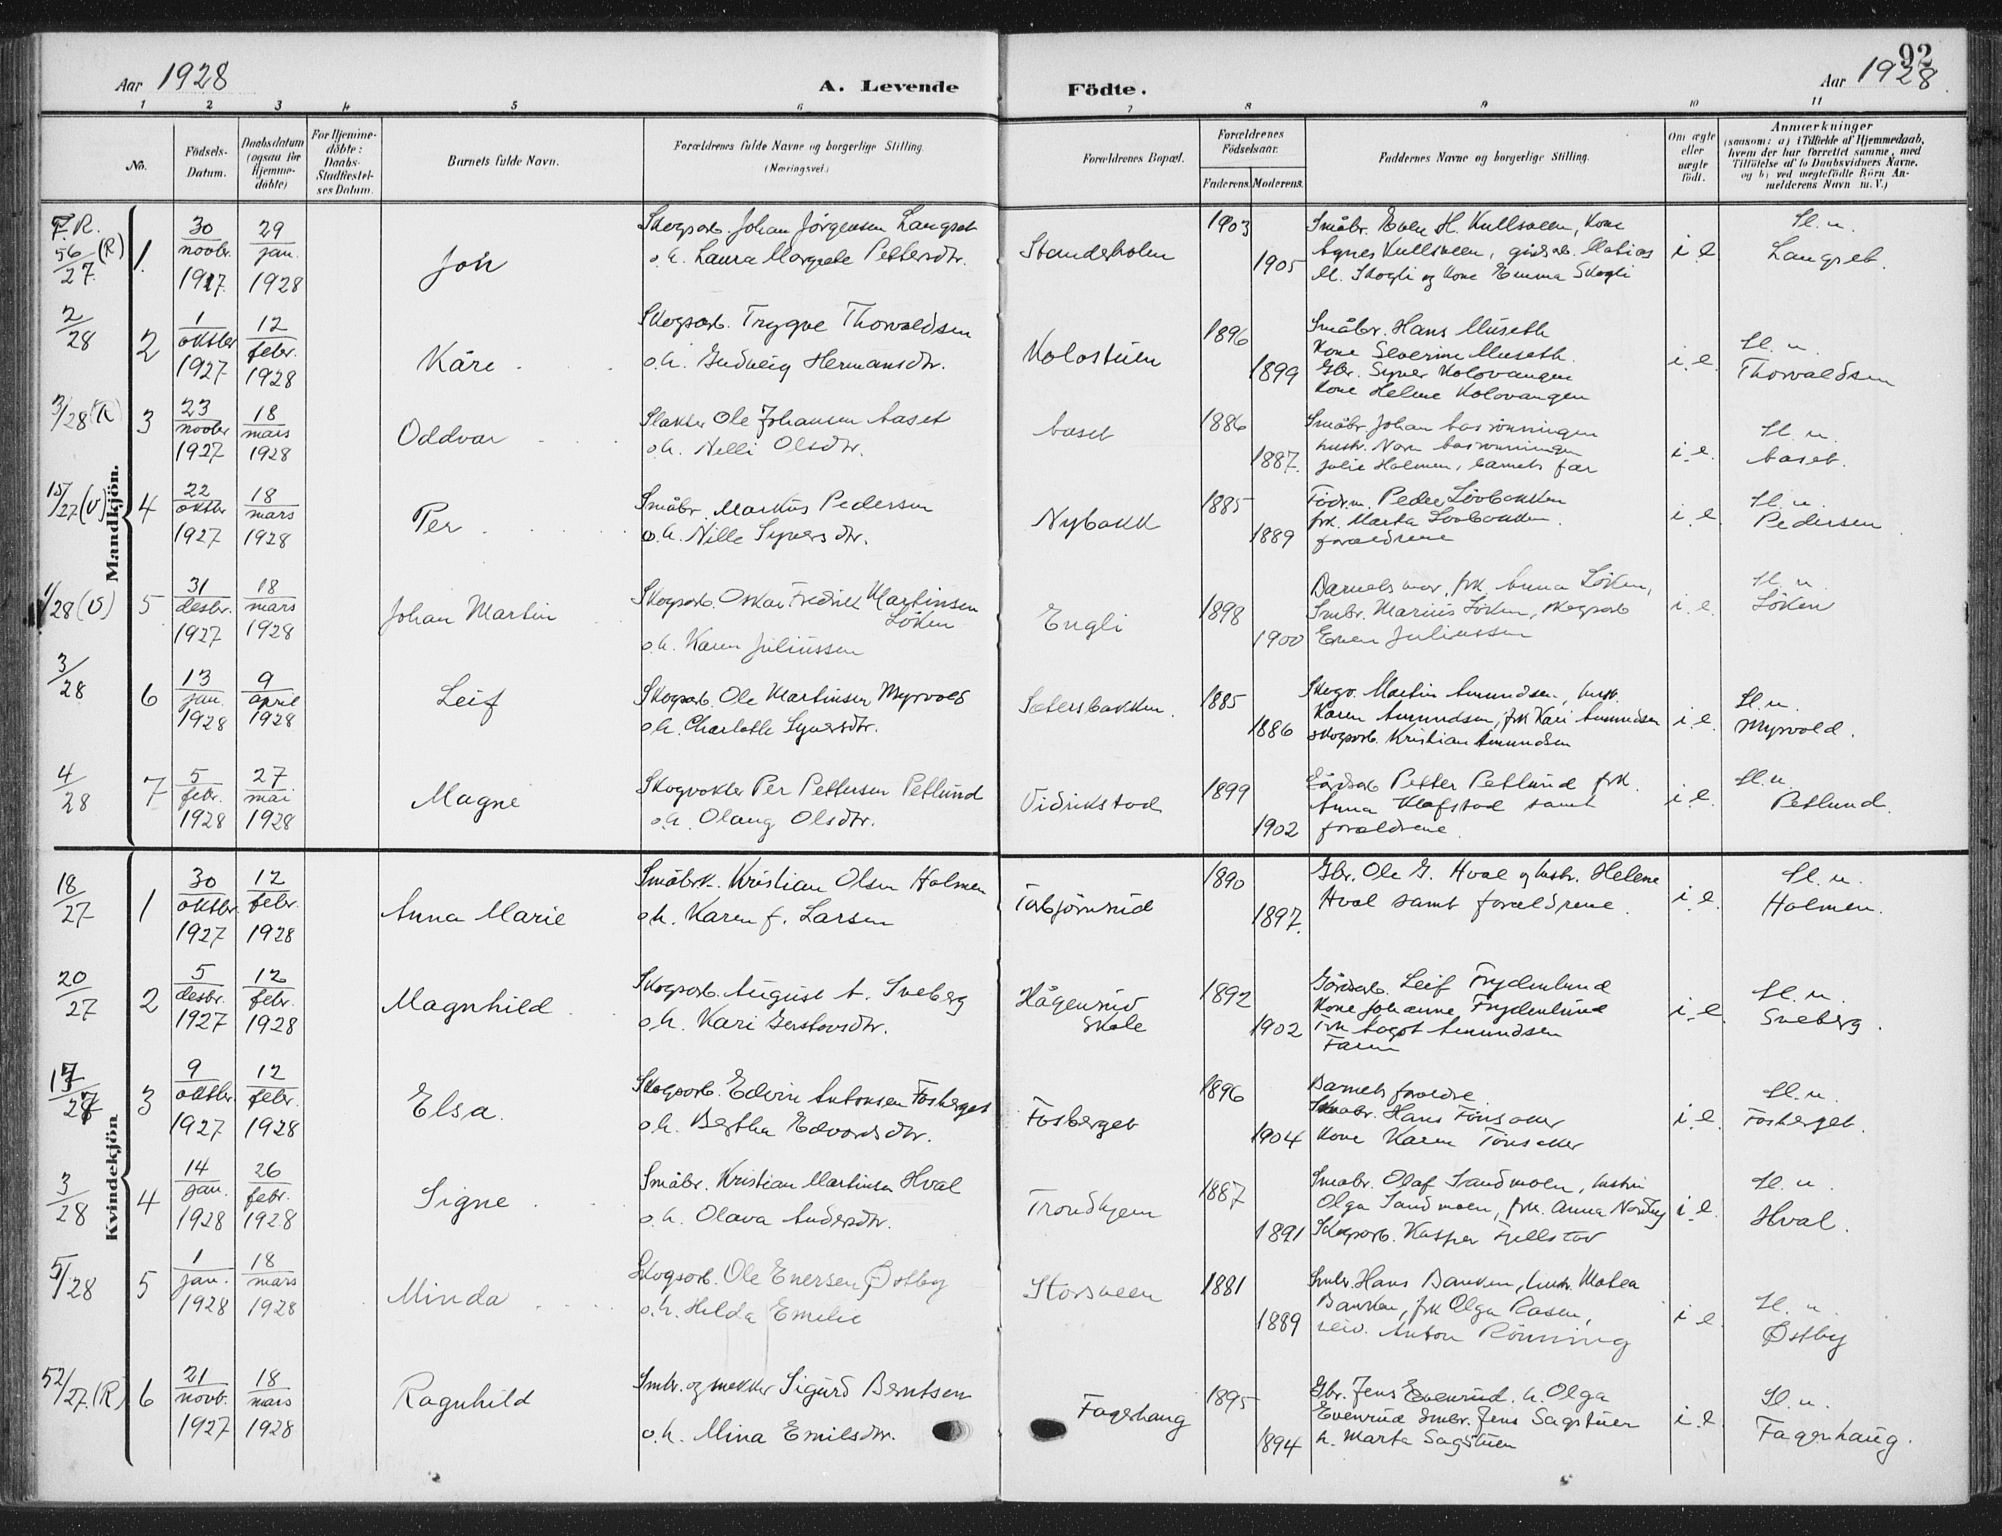 Aar 1928
A. Levende
Födte.
92
Aar 1928
1 2 3 4 5 6 7 8 9 10 11
No.
Födsels-
Datum.
Daabsdatum
(ogsaa for
Hjemme-
döbte)
For Hjemme-
döbte:
Daabs-
Stadfestel-
ses Datum.
Barnets fulde Navn.
Forældrenes fulde Navne og borgerlige Stilling
(Næringsvei)
Forældrenes Bopæl.
Forældrenes
Födselsaar.
Faderens. Moderens.
Faddernes Navne og borgerlige Stilling.
Om ægte
eller
uægte
födt.
Anmærkninger
(saasom: a) i Tilfælde af Hjemmedaab,
hvem der har forrettet samme, med
Tilföielse af to Daabsvidners Navne,
og b) ved uægtefödte Börn An-
melderens Navn m. V.)
Mandkjön.
F.R.
56/27 (R)
1. 30 novbr. 1927. 29 jan. 1928
Jon
Skogsarb. Johan Jörgensen Langset
o.h. Laura Margrete Pettersdtr.
1903
1905
Småbr. Even H. Kullsveen, Kone
Agnes Kullsveen, gårdsarb. Matias
M. Skogli og Kone Emma Skogli
i e
H. u.
Langset.
2/28
2 1 oktbr 1927 12 febr. 1928
Kåre
Skogsarb. Trygve Thorvaldsen
o.h. Gudveig Hermansdtr.
Kolostuen
1896
1899
Småbr. Hans Museth
Kone Severine Museth.
Gbr. Syver Kolovangen
Kone Helene Kolovangen
i. e.
H. u.
Thorvaldsen
3/28 (R)
3 23 novbr 1927 18 mars 1928
Oddvar
Slakter Ole Johansen Aaset
o.h. Nilli Olsdtr.
Aaset
1886
1887.
Småbr. Johan Aasrönningen
hustr. Nora Aasrönningen
Julie Holmen, barnets far
i. e.
H. u.
Aaset.
15/27 (U)
4 22 oktbr 1927 18 mars 1928
Per
Småbr. Markus Pedersen
o.h. Nille Syversdtr.
Nybakk
1885
1889
Peder Lövbakken
frk. Marta Lövbakken.
forældrene
i. e.
H. u.
Pedersen
1/28 (U)
5 31 desbr. 1927 18 mars 1928
Johan Martin
Skogsarb. Oskar Fredrik Martinsen
Löken
o.h. Karen Juliussen
Engli
1898
1900
Barnets mor, frk. Anna Löken,
Smbr. Marius Löken, skogsarb
Even Juliussen
i. e.
H. u.
Löken
3/28
6 13 jan. 1928 9 april 1928
Leif
Skogsarb. Ole Martinsen Myrvold
o.h. Charlotte Syversdtr.
Sætersbakken.
1885
1886
Skogv. Martin Amundsen, hustr.
Karen Amundsen, frk Kari Amundsen
skogsarb. Kristian Amundsen
i. e.
H. u.
Myrvold.
4/28
7 5 febr. 1928 27 mai 1928
Magne
Skogvokter Per Pettersen Petlund
o.h. Olaug Olsdtr.
Vidrikstad
1899
1902
Gårdsarb Petter Petlund frk.
Anna Klafstad samt
forældrene.
i. e.
H. u.
Petlund.
Kvindekjön
18/27
1 30 oktbr. 1927 12 febr. 1928
Anna Marie
Småbrk. Kristian Olsen Holmen
o.h. Karen f. Larsen
Torbjörnrud
1890
1897.
Gbr. Ole G. Hval og hustr. Helene
Hval samt forældrene.
i. e.
H. u.
Holmen.
20/27
2 5 desbr. 1927 12 febr. 1928
Magnhild
Skogsarb. August A. Sveberg
o.h. Kari Gustavsdtr.
Hågenrud
skole
1892
1902
Gårdsarb. Leif Frydenlund
Kone Johanne Frydenlund
Frk Aagot Amundsen
Faren
i. e.
H. u.
Sveberg.
17/27
3 9 oktbr. 1927 12 febr. 1928
Elsa.
Skogsarb. Edvin Antonsen Fosberget
o.h. Bertha Edvardsdtr.
Fosberget
1896
1904
Barnets foreldre
Småbr. Hans Tönsaker
Kone Karen Tönsaker
i. e.
H. u.
Fosberget.
3/28
4 14 jan. 1928 26 febr. 1928
Signe
Småbr. Kristian Martinsen Hval
o.h. Olava Andersdtr.
Trondhjem
1887
1891
Smabr. Olaf Sandmoen, hustru
Olga Sandmoen, frk. Anna Nordby
Skogsarb. Kasper Fjellstad
i. e.
H. u.
Hval.
5/28
5 1 jan. 1928 18 mars 1928
Minda
Skogsarb. Ole Enersen Østby
o.h. Hilda Emilie
Storsveen
1881
1889
Smbr. Hans Banken, hustr. Matea
Banken, frk Olga Rasen,
Anton Rönning
i. e.
H. u.
Østby
52/27. (R)
6 21 novb. 1927 18 mars 1928
Ragnhild
Smbr. og snekker Sigurd Berntsen
o.h. Mina Emilsdtr.
Fagerhaug
1895
1894
Gbr. Jens Evenrud. h. Olga
Evenrud Smbr. Jens Sagstuen
h. Marta Sagstuen
i. e.
H. u.
Fagerhaug.